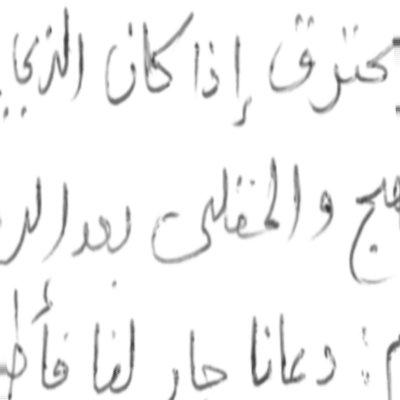 يحترق إذا كان الذي
والخفلى بعد الد
: دعانا جار لنا فأط